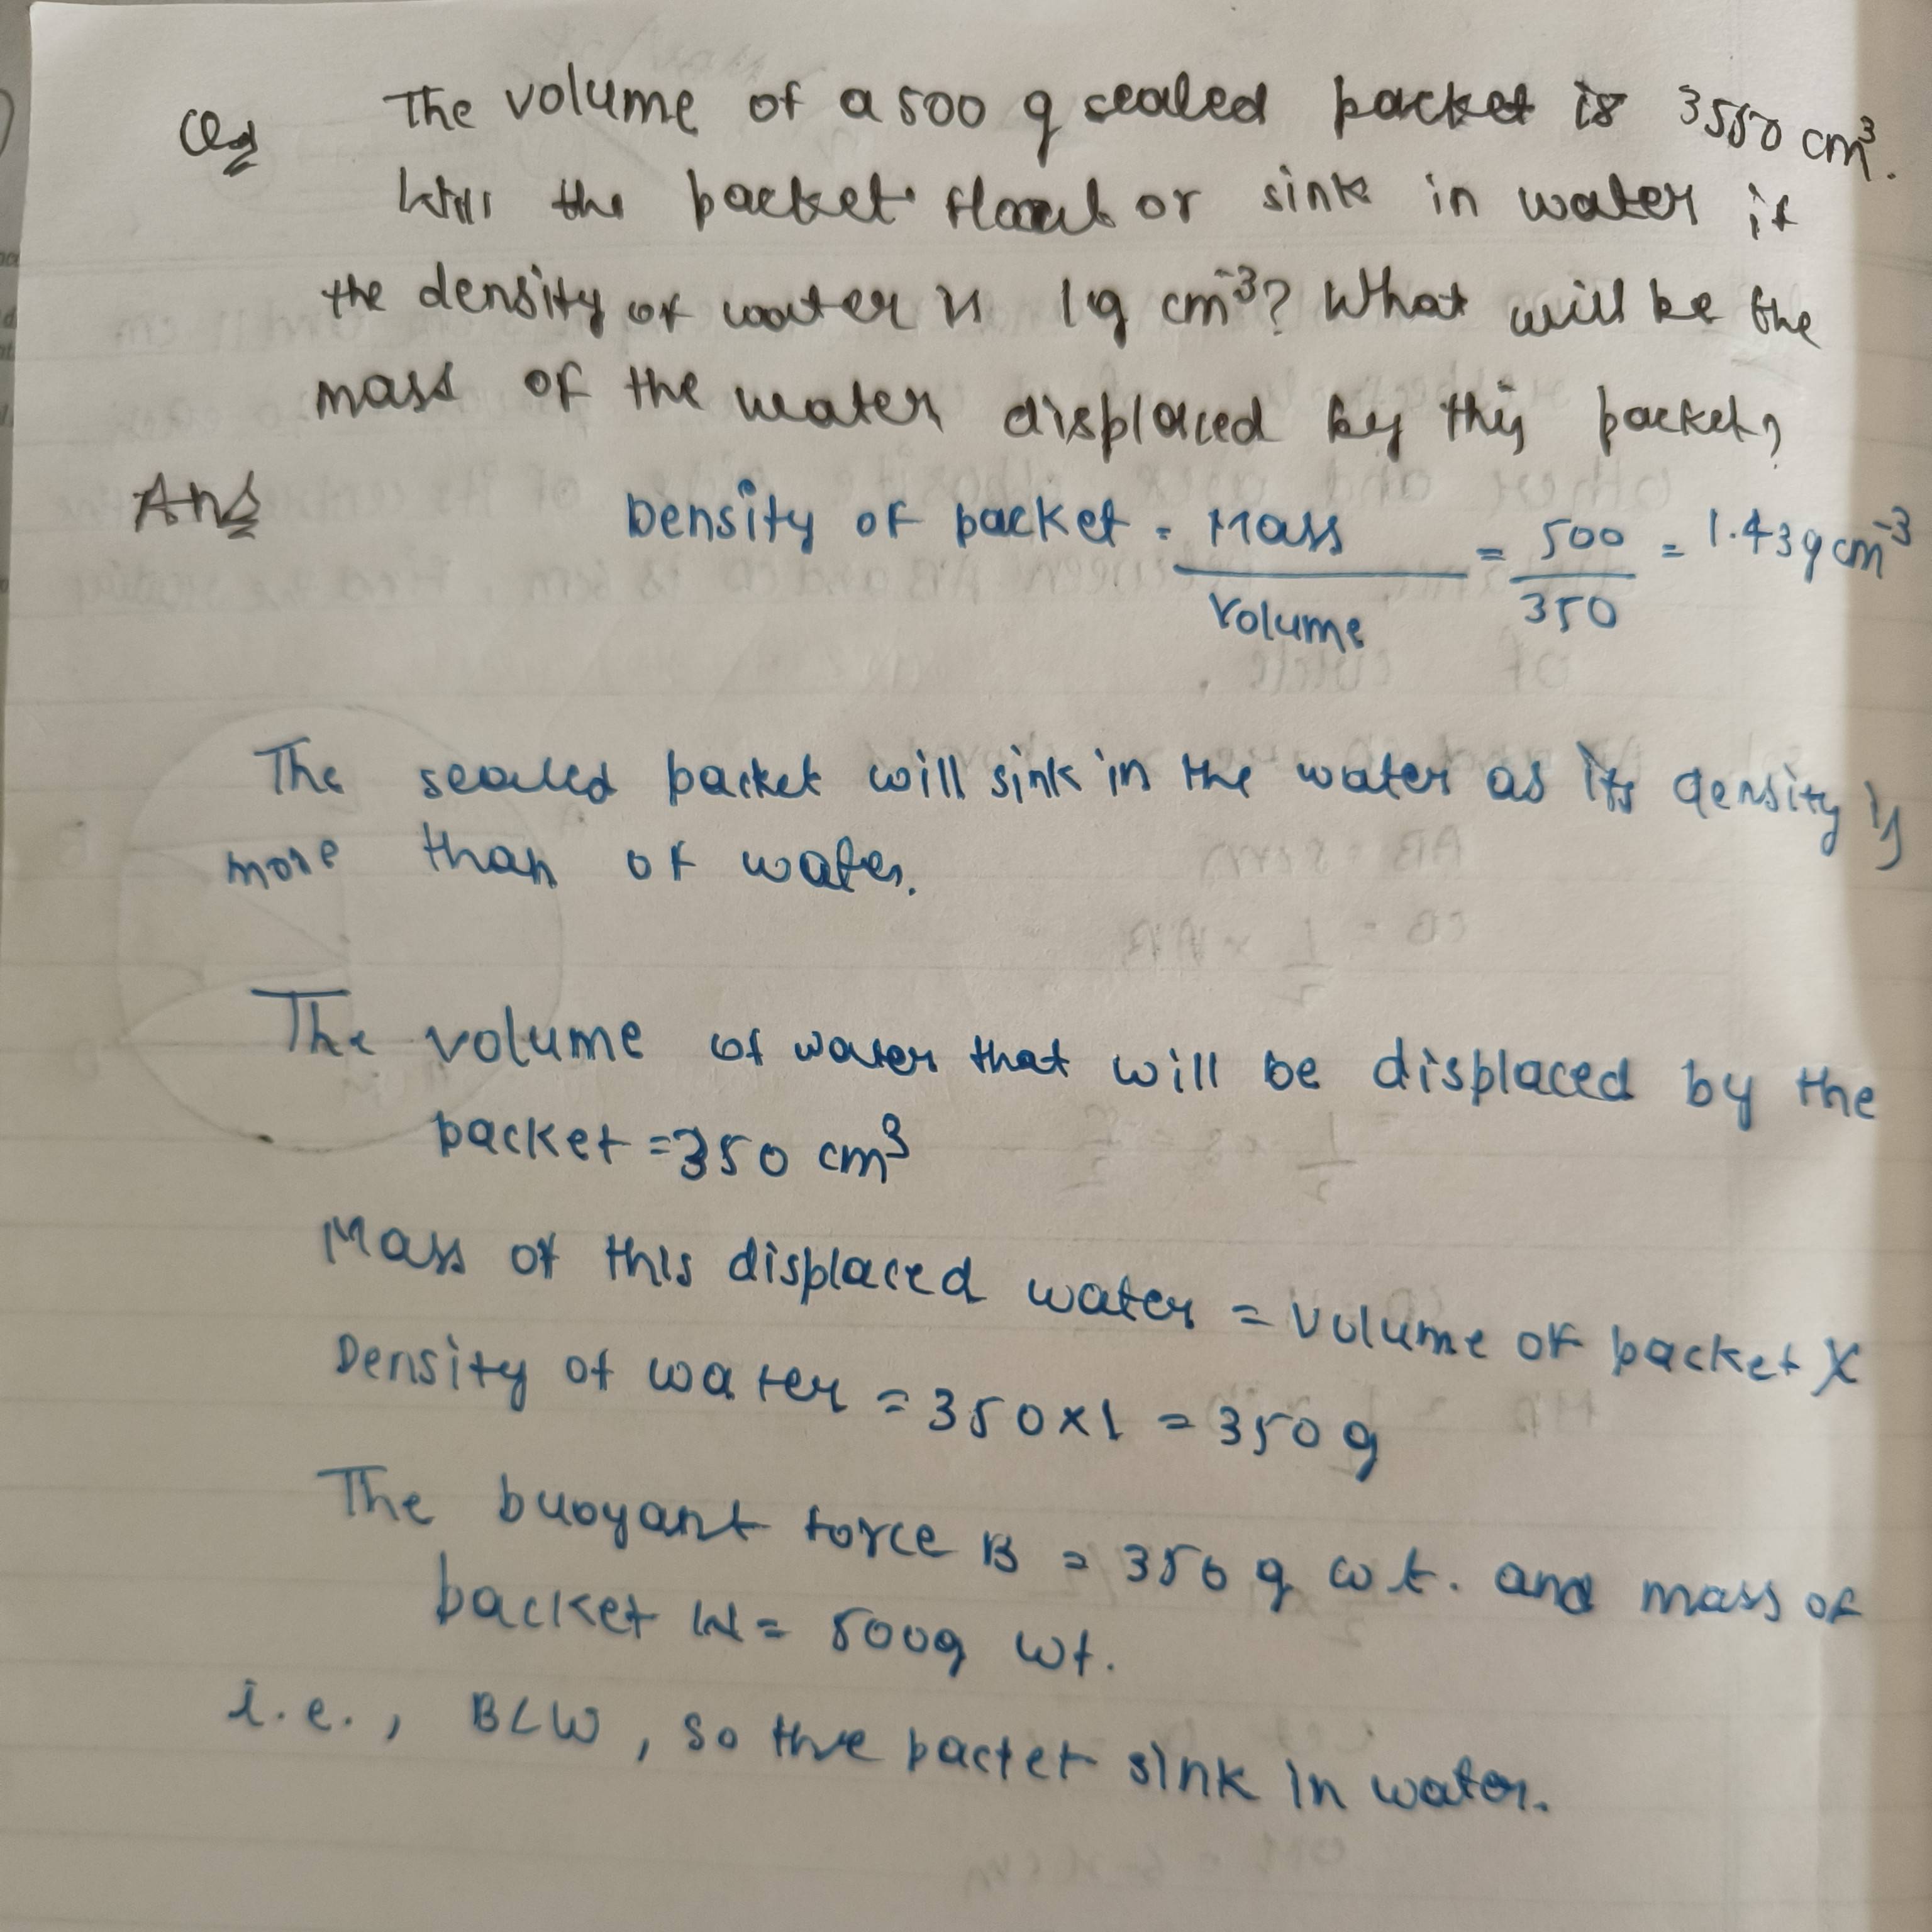 Q
The volume of a 500 g sealed packet is 3550 cm³.
Will the packet float or sink in water if
the density of water is 1g cm⁻³? What will be the
mass of the water displaced by this packet?
Ans
Density of packet = Mass / Volume = 500 / 350 = 1.43g cm⁻³
The sealed packet will sink in the water as its density is
more than of water.
The volume of water that will be displaced by the
packet = 350 cm³
Mass of this displaced water = Volume of packet X
Density of water = 350 x 1 = 350 g
The buoyant force B = 350 g wt. and mass of
packet W = 500g wt.
i.e., B < W, so the pactet sink in water.